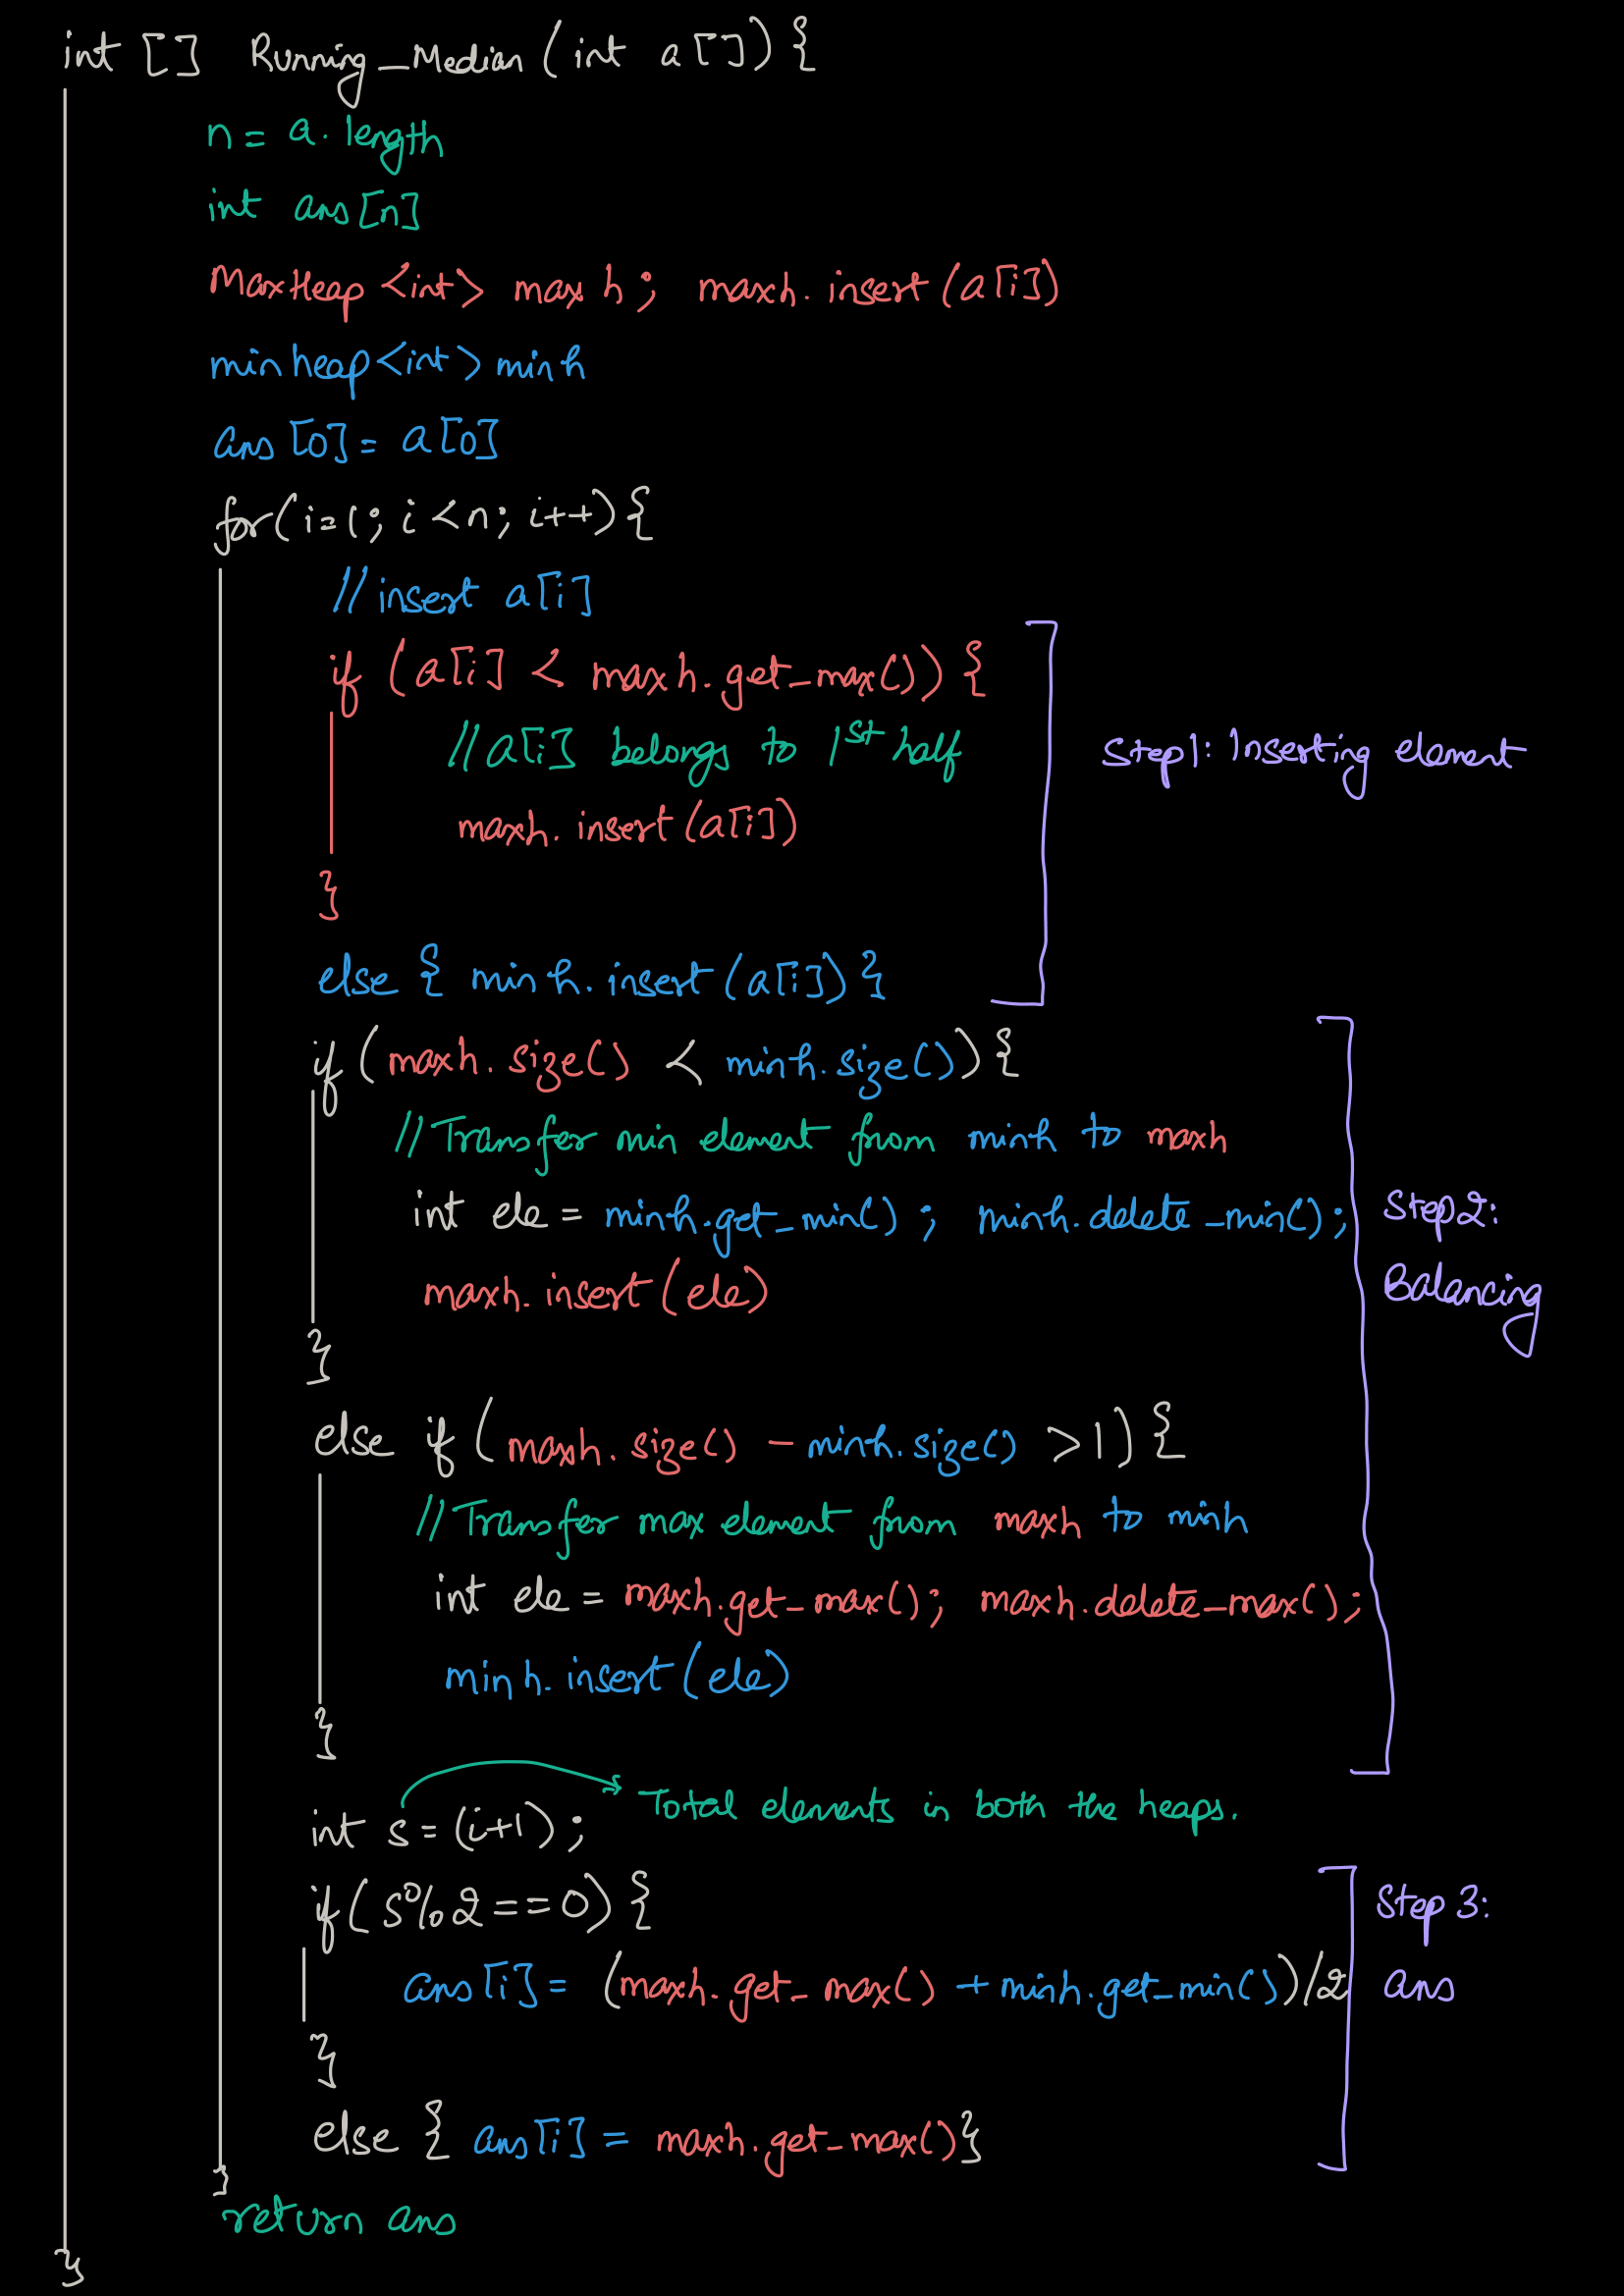 int [] Running_Median (int a[]) {
n = a.length
int ans[n]
MaxHeap <int> maxh ; maxh.insert(a[i])
minheap<int> minh
ans[0] = a[0]
for(i=1; i<n; i++){
//insert a[i]
if (a[i] < maxh.get_max()) {
//a[i] belongs to 1st half
maxh.insert(a[i])
}
Step1: Inserting element
else { minh.insert(a[i]) }
if (maxh.size() < minh.size()) {
//Transfer min element from minh to maxh
int ele = minh.get_min() ; minh.delete_min();
maxh.insert(ele)
}
Step2:
Balancing
else if (maxh.size() - minh.size() >1) {
//Transfer max element from maxh to minh
int ele = maxh.get_max(); maxh.delete_max();
minh.insert(ele)
}
int s = (i+1) ;
Total elements in both the heaps.
if (s%2==0) {
ans[i] = (maxh.get_max() + minh.get_min())/2
}
Step 3:
ans
else { ans[i] = maxh.get_max()}
}
return ans
}